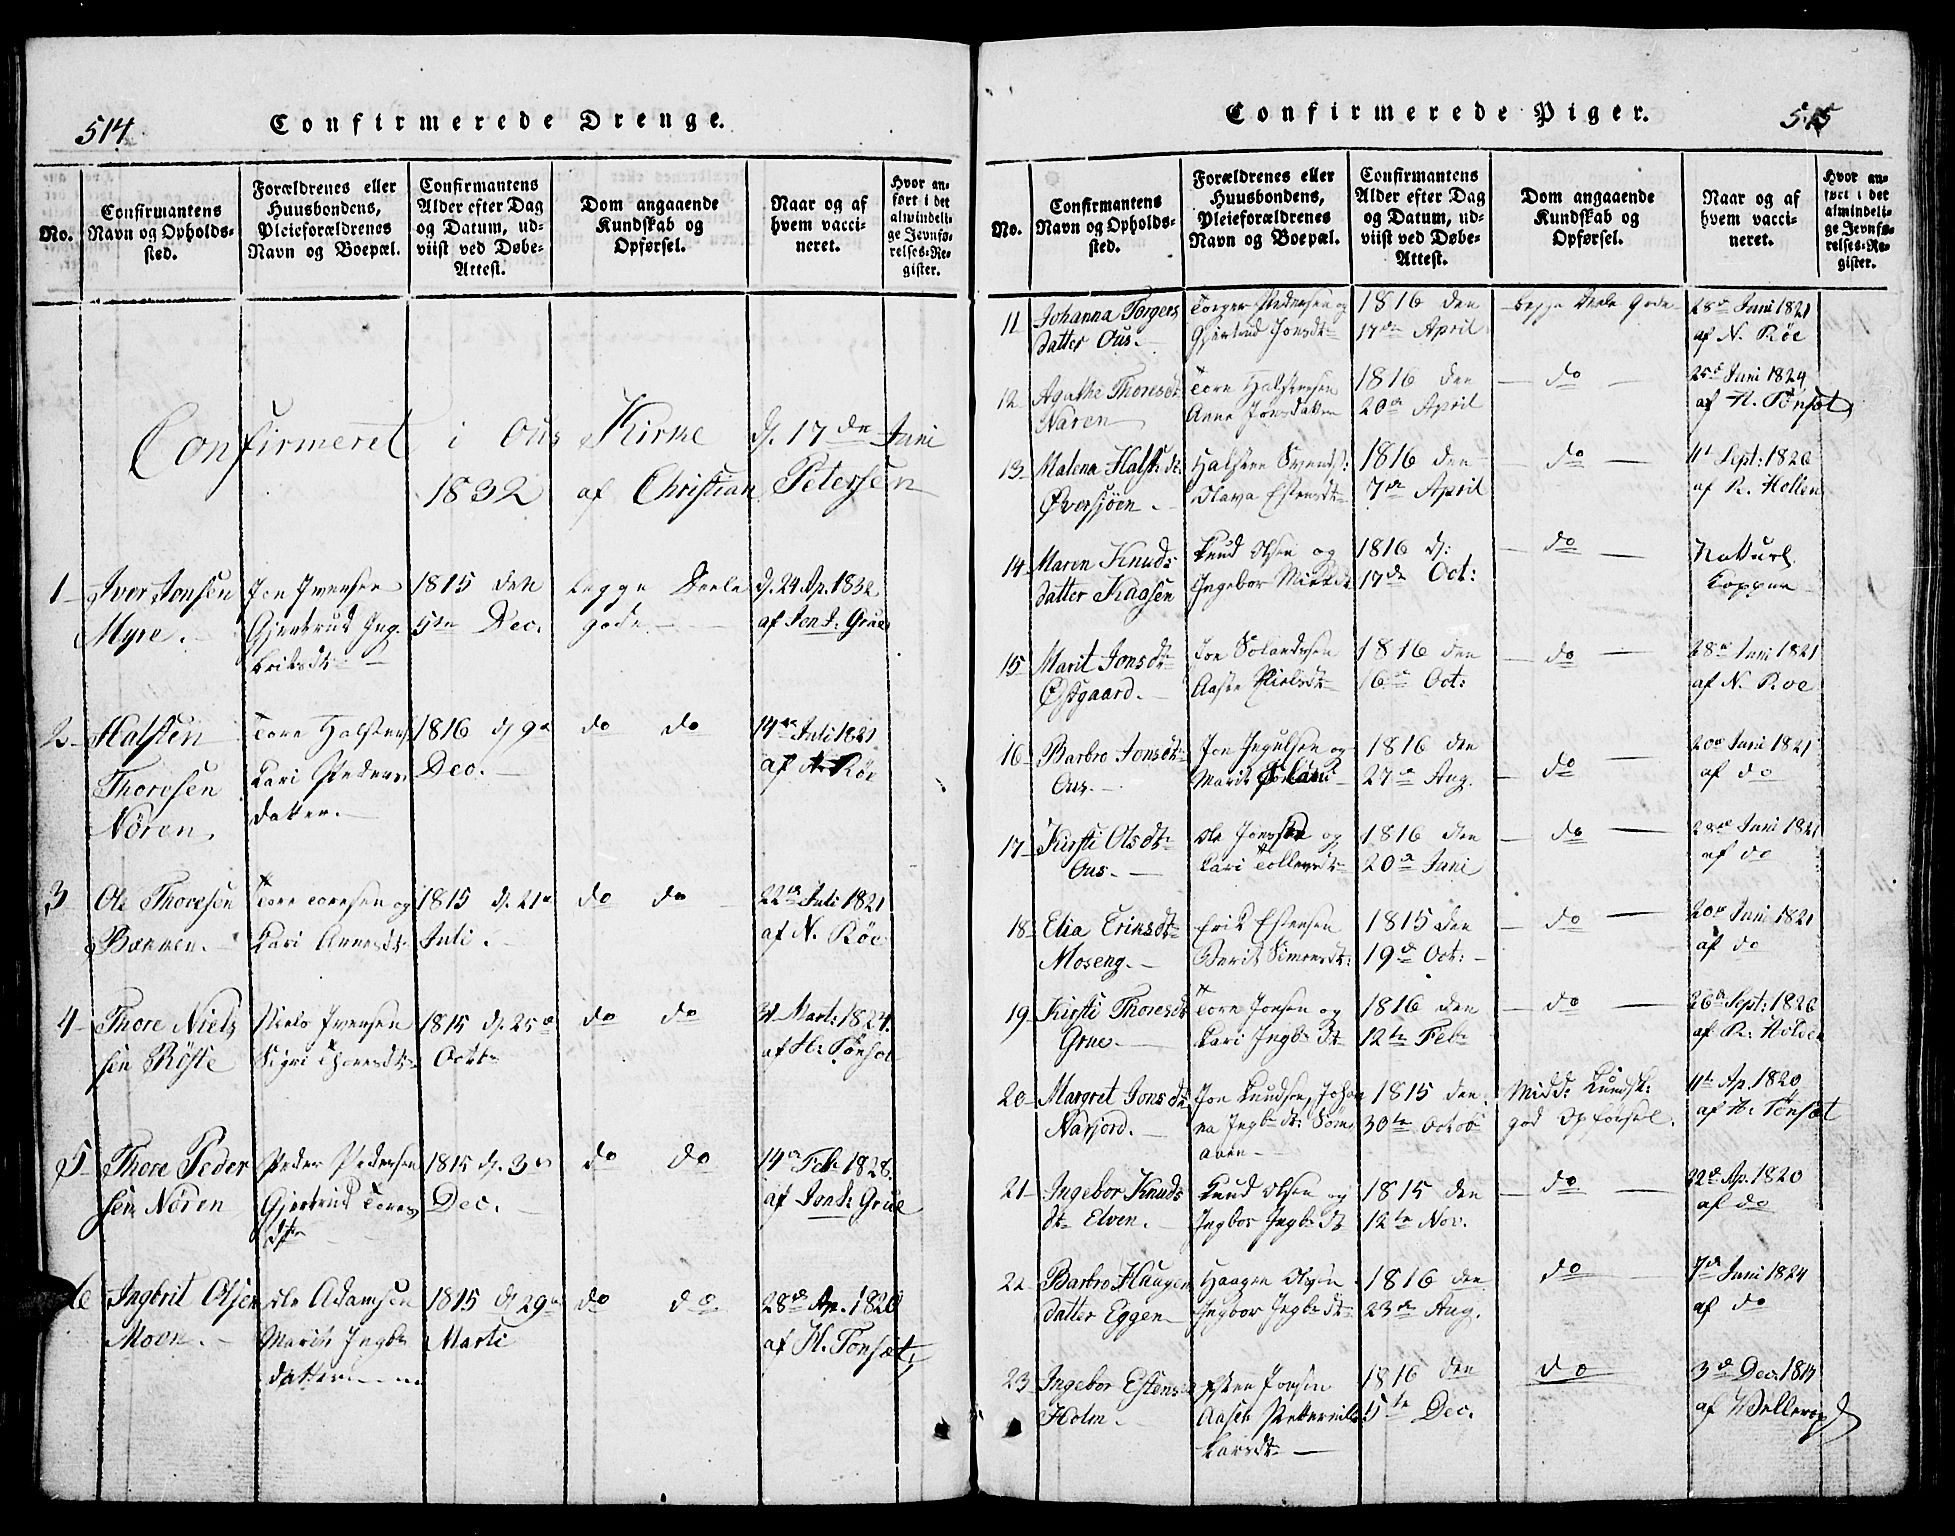 514.
Confirmerede Drenge.
No.
Confirmantens
Navn og Opholds-
sted.
Forældrenes eller
Huusbondens,
Pleieforældrenes
Navn og Boepæl.
Confirmantens
Alder efter Dag
og Datum, ud-
viist ved Døbe-
Attest.
Dom angaaende
Kundskab og
Opførsel.
Naar og af
hvem vacci-
neret.
Hvor an-
ført i det
almindeli-
ge Jevnfø-
relses-Re-
gister.
Confirmeret i Ous Kirke d. 17de Juni
1832 af Christian Petersen
1
Iver Jonsen
Myre.
Jon Iversen
Gjertrud Ing-
briksdt
1815 den
5te Dec.
begge Deele
gode
d. 24 Ap. 1832
af Jon I. Grue
2
Halsten
Thoresen
Nøren
Tore Halstens
Kari Peders
datter.
1816 d. 9d
Dec.
do do
14de Juli 1821
af N. Røe
3
Ole Thoresen
Bakken.
Tore Toresen og
Kari Arnesdt
1815 d. 21d
Juli.
do do
22de Juli 1821
af N. Røe
4
Thore Niels
sen Røste
Niels Iversen
Sigri Thoresdt
1815 d. 25d
Octbr
do do
31 Marti 1824
af H. Tønset
5
Thore Peder
sen Nøren
Peder Pedersen
Gjertrud Tores
dtr
1815 d. 3d
Dec.
do do
14de Feb. 1828
af Jon I. Grue
6
Ingbrit Olsen
Moen.
Ole Adamsen
Marit Ingbr
datter
1815 d. 29d
Marti
do do
28de Ap. 1820
af H. Tønset
Confirmerede Piger.
515
No.
Confirmantens
Navn og Opholds-
sted.
Forældrenes eller
Huusbondens,
Pleieforældrenes
Navn og Boepæl.
Confirmantens
Alder efter Dag
og Datum, ud-
viist ved Døbe-
Attest.
Dom angaaende
Kundskab og
Opførsel.
Naar og af
hvem vacci-
neret.
Hvor an-
ført i det
almindeli-
ge Jevnfø-
relses-Re-
gister.
11
Johanna Torgers
datter Ous.
Torger Pedersen og
Gjertrud Jonsdt
1816 den
17de April
begge Deele Gode
28de Juni 1821
af N. Røe
12
Agathe Thoresdt
Nøren
Tore Halstensen
Anne Jonsdatter
1816 den
20de April
do
25d Juni 1824
af H. Tønset
13
Malena Halst. dt.
Øversjøen
Halsten Svends:
Olava Estensdt
1816 den
7de April
do
4d Sept: 1820
af R. Hollen
14
Maren Knuds
datter Kaasen
Knud Olsen og
Ingebor
1816 d:
17de Oct:
do
Naturl.
Kopper
15
Marit Jonsdt
Østgaard.
Jon
Aaste Nielsdt
1816 den
16d Oct:
do
28de Juni 1821
af N. Roe
16
Barbro Jonsdt
Ous.
Jon Ingulsen og
Marit
1816 den
27d Aug.
do
20d Juni 1821
af do
17
Kirsti Olsdt
Ous.
Ole Jonssen og
Kari Tollevsdt
1816 den
20d Juni
do
28de Juni 1821
af do
18
Elia Erinsdt
Moseng.
Erik Estensen
Berit Simonsdt:
1815 den
19d Oct:
do
20d Juni 1821
af do
19
Kirsti Thoresdt
Grue
Tore Jonsen og
Kari Ingbr dt
1816 den
12te Febr
do
26d Sept: 1820
af R: Holden
20
Margret Jonsdt
Narjord.
Jon Knudsen, Johan
na Ingbr dt:
aaen
1815 den
30te Octob
Midd: Kundsk:
god Opførsel.
4de Ap. 1820
af H. Tønset
21
Ingebor Knuds
dt Elven.
Knud Olsen og
Ingbor Ingbr dt
1815 den
12te Nov.
do
22d Ap. 1820
af do
22
Barbro Haagen
datter Eggen
Haagen Olsen
Ingbor Ingbr dt
1816 den
23de Aug.
do
7de Juni 1824
af do
23
Ingebor Estens
Holm
Esten Jonsen
Aaset
Larsdt
1816 den
5te Dec.
do
3d Dec. 1819
af Wellerop